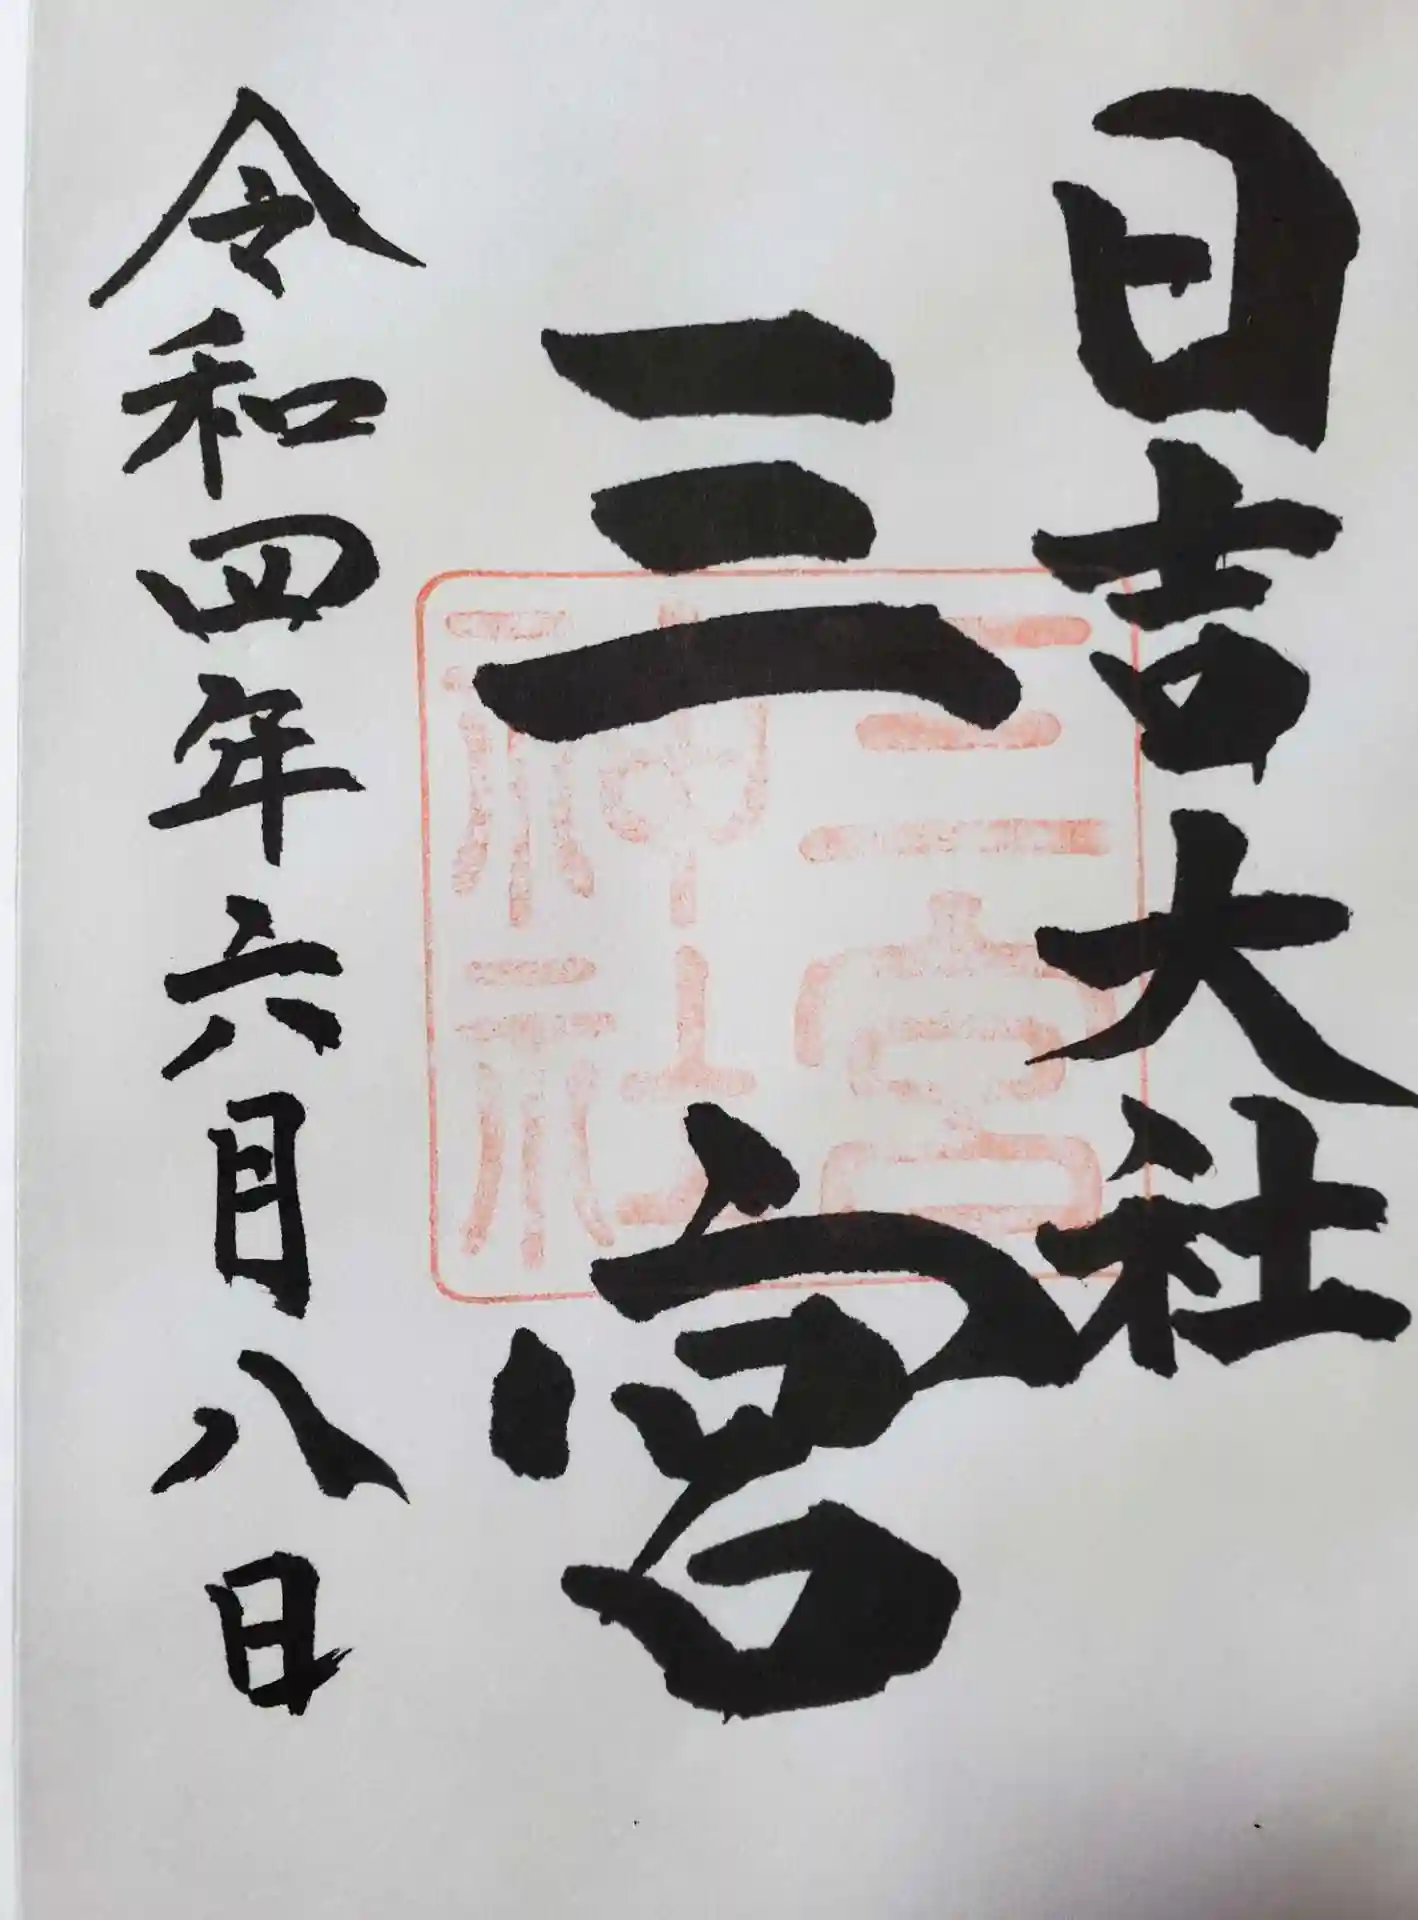 日吉大社
三宮
三宮
神社
令和四年六月八日